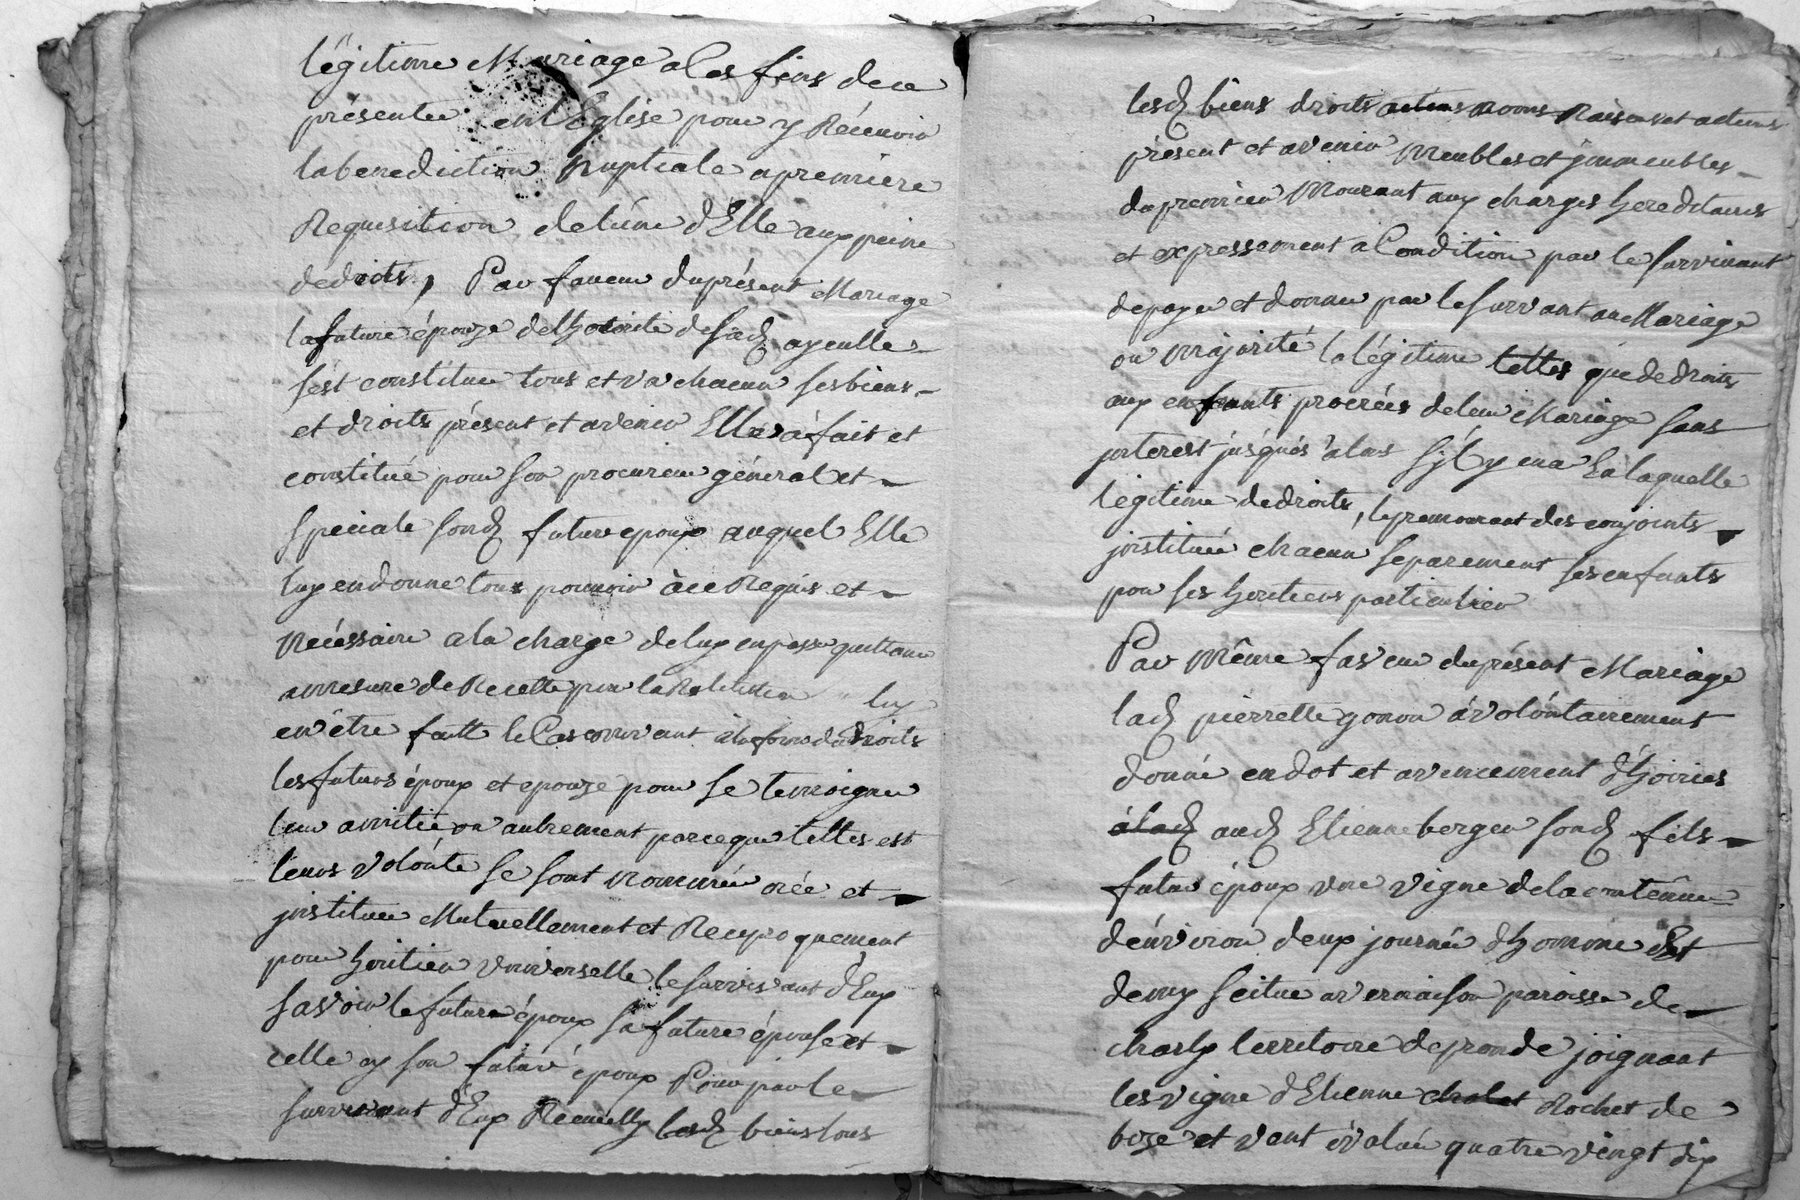 légitime Mariage a les fins de ce
présenter en l'Eglise pour y Récevoir
la benediction Nuptiale a premiere
Requisition de l'úne d'Elle aux peine
de droits, Par faveur du présent Mariage
la future épouze de lhotorité de sad ayeulle
s'est constituée tous et un chacun ses biens
et droits présent et avenir Elle a fait et
constitué pour son procureur général et
speciale sond futur epoux auquel Elle
luy en donne tous pouvoir à ce Requis et
Nécéssaire a la charge de luy en passer quittance
a mesure de Recette pour la Restitution luy
en être faitte le Cas arrivant à la forme du Droits
les futurs époux et epouze pour se temoigner
leur amitié ou autrement parce que telles est
leurs volónte se sont nommée créé et
jnstituée Mutuellement et Recyproquement
pour héritier universelle le survivant d'Eux
sasvoir le future époux sa future épouse et
celle cy son futur époux Pour par le
survivant d'Eux Recueilly lesd biens tous
lesd biens droits actions noms Raisons et actions
présent et avenir Meubles et jmmeubles
du premier Mourant aux charges héréditaires
et expressement a Condition par le survivant
de payer et donner par le survant au Mariage
ou majorité la légitime telles que de droits
aux enfants procréés de leur Mariage sans
jnterest jusqués alors s'jl y en a la laquelle
légitime de droits, le premourant des conjoints
jnstitué chacun separement ses enfants
pour ses héritiers particulier
Par Même faveur du présent Mariage
lad pierrette gonon á volóntairement
donné en dot et avencement d'hoiries
à lad aud Etienne berger sond fils
futur époux une vigne de la contenue
d'énviron deux journée d'homme Et
demy scitue a vernaison paroisse de
charly territoire de pronde joignant
les vigne d'Etienne cholet Rochet de
bize et vent évalué quatre vingt dix